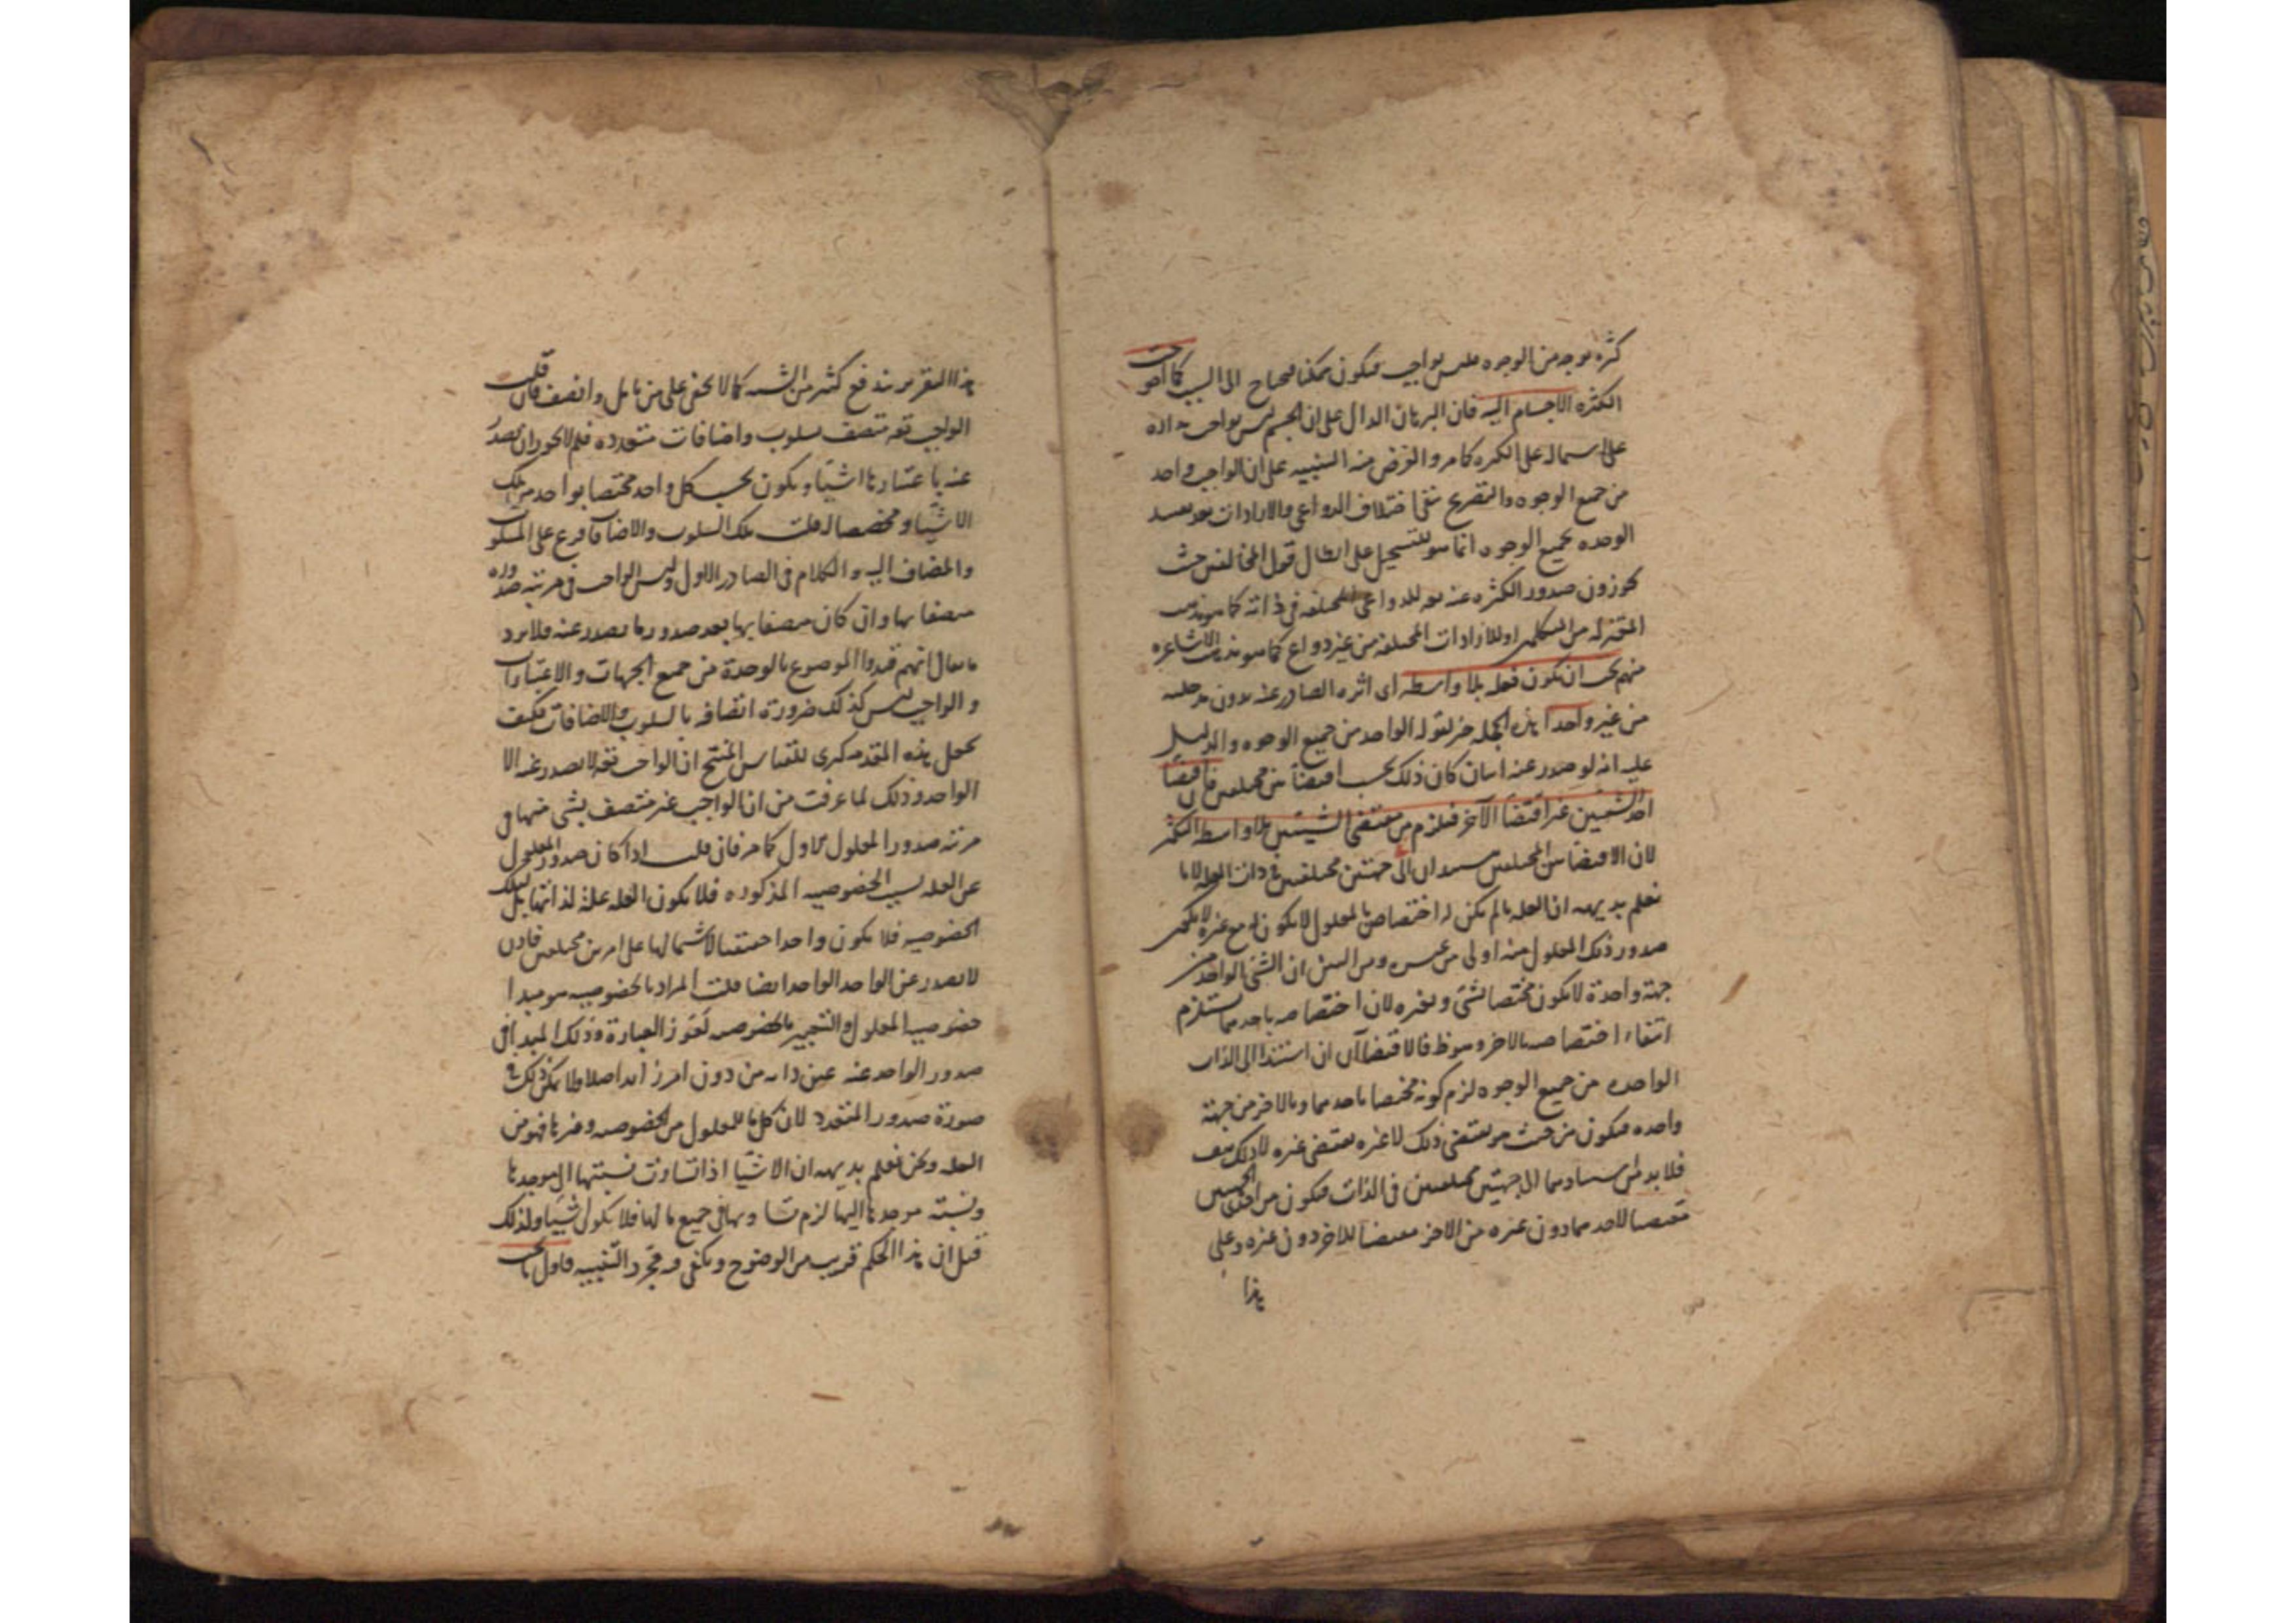 كثرة بوجه من الوجوه فليس بواجب فيكون ممكنا فيحتاج الى السبب كما احو جت
الكثرة الاجسام اليه فان البرهان الدال على ان الجسم ليس بواجب مداره
على اشتماله على الكثرة كما مر والغرض منه التنبيه على ان الواجب واحد
من جميع الوجوه والتصريح بنفي اختلاف الدواعي والارادات بعد تقييد
الوحدة بجميع الوجوه انما هو للتسجيل على ابطال قول المخالفين حيث
يجوزون صدور الكثرة عنه تعه للدواعي المختلفة في ذاته كما هو مذهب
المعتزلة من المتكلمين او للارادات المختلفة من غير دواع كما هو مذهب الاشاعره
منهم يجب ان يكون فعله بلا واسطة اى اثره الصادر عنه بدون مدخلية
من غير واحدا هذه الجملة خبر لقوله الواحد من جميع الوجوه والدليل
عليه انه لو صدر عنه اثنان كان ذلك بحسب اقتضائين مختلفين فان اقتضا
احد الشيئين غير اقتضا الآخر فيلزم من مقتضى الشيئين بلا واسطة التكثر
لان الاقتضائين المختلفين يستندان الى جهتين مختلفتين في ذات العلة لانا
نعلم بديهة ان العلة ما لم يكن له اختصاص بالمعلول لا يكون له مع غيره لا يمكن
صدور ذلك المعلول منه اولى من غيره ومن البين ان الشئ الواحد من
جهة واحدة لا يكون مختصا بشئ وبغيره لان اختصاصه باحدهما يستلزم
انتفاء اختصاصه بالاخر وهو ظ فالاقتضاآن ان استندا الى الذات
الواحدة من جميع الوجوه لزم كونه مختصا باحدهما وبالاخر من جهة
واحده فيكون من حيث هو يقتضى ذلك لا غيره يقتضى غيره لا ذلك هف
فلا بد من استنادهما الى جهتين مختلفتين في الذات فيكون من احدى الجهتين
مقتضيا لاحدهما دون غيره من الاخر مقتضيا للاخر دون غيره وعلى
هذا
هذا التقرير يندفع كثير من الشبه كما لا يخفى على من تامل وانصف فان قلت
الواجب تعه متصف بسلوب واضافات متعدده فلم لا يجوز ان يصدر
عنه باعتبارها اشيا ويكون بحسب كل واحد مختصا بواحد من تلك
الاشيا ومخصصا له قلت تلك السلوب والاضافات فرع على المسلوب
والمضاف اليه والكلام في الصادر الاول وليس الواجب في مرتبة صدوره
متصفا بها وان كان متصفا بها بعد صدور ما يصدر عنه فلا يرد
ما يقال انهم قيدوا الموضوع بالوحدة من جميع الجهات والاعتبارات
والواجب ليس كذلك ضرورة اتصافه بالسلوب والاضافات فكيف
يجعل هذه المقدمة كبرى للقياس المنتج ان الواجب تعه لا يصدر عنه الا
الواحد وذلك لما عرفت من ان الواجب غير متصف بشئ منها في
مرتبة صدور المعلول الاول كما مر فان قلت اذا كان صدور المعلول
عن العلة بسبب الخصوصية المذكوره فلا يكون العلة علة لذاتها بل لتلك
الخصوصية فلا يكون واحدا حقيقيا لاشتمالها على امرين مختلفين فاذن
لا يصدر عن الواحد الواحد ايضا قلت المراد بالخصوصية هو مبدا
خصوصية المعلول والتعبير بالخصوصية لعوز العبارة وذلك المبدا في
صدور الواحد عنه عين ذاته من دون امر زايد اصلا ولا يمكن ذلك في
صورة صدور المتعدد لان كل ما للمعلول من الخصوصية وغيرها فهو من
العلة ونحن نعلم بديهة ان الاشيا اذا تساوت نسبتها الى موجدها
ونسبة موجدها اليها لزم تساويها في جميع ما لها فلا يكون اشيا ولذلك
قيل ان هذا الحكم قريب من الوضوح ويكفى فيه مجرد التنبيه فاول ما يجب